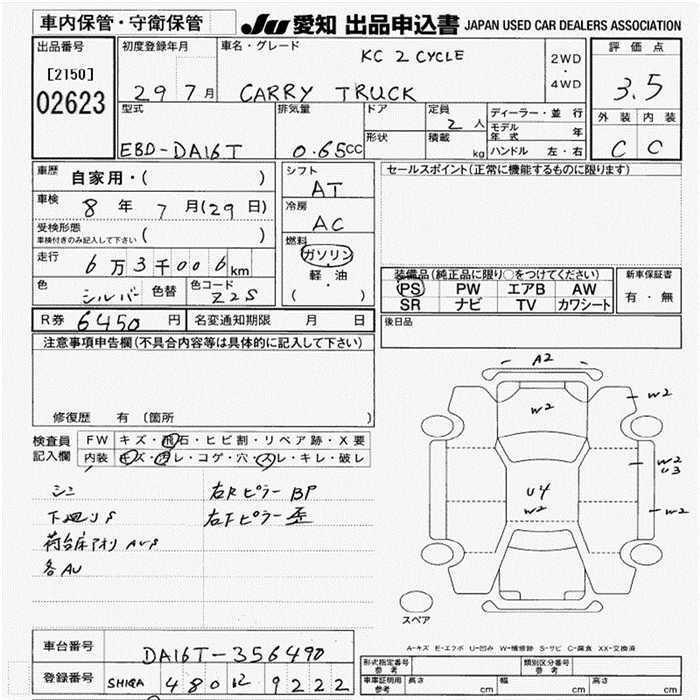 車内保管・守衛保管
JU 愛知 出品申込書 JAPAN USED CAR DEALERS ASSOCIATION
出品番号
[2150]
02623
初度登録年月
29 7月
車名・グレード
KC 2 CYCLE
CARRY TRUCK
2WD
・
4WD
評価点
3.5
外装 内装
C C
型式
EBD-DA16T
排気量
0.65cc
ドア
形状
定員
2人
積載
kg
ディーラー・並行
モデル年式 年
ハンドル 左・右
車歴
自家用・( )
車検
8年 7月(29日)
受検形態
車検付きのみ記入して下さい ( )
走行
6万3千006km
色
シルバー
色替
色コード
Z2S
シフト
AT
冷房
AC
燃料
ガソリン
軽・油
( )
セールスポイント(正常に機能するものに限ります)
装備品(純正品に限り○をつけてください)
PS PW エアB AW
SR ナビ TV カワシート
新車保証書
有・無
R券 6450円
名変通知期限 月 日
後日品
注意事項申告欄(不具合内容等は具体的に記入して下さい)
修復歴 有 〔箇所 〕
検査員
記入欄
FW キズ・飛石・ヒビ割・リペア跡・X要
内装 キズ・汚レ・コゲ・穴・スレ・キレ・破レ
シミ
右Rピラー BP
右Fピラー 歪
荷台床アオリ
各AU
A2
W2
W2
W2
U3
U4
W2
W2
スペア
A-キズ E-エクボ U-凹み W-補修跡 S-サビ C-腐食 XX-交換済
車台番号
DA16T-356490
登録番号
SHIGA 480 ヒ 9222
形式指定番号
参考
類別区分番号
参考
車車証明用
参考
長さ cm
幅 cm
高さ cm